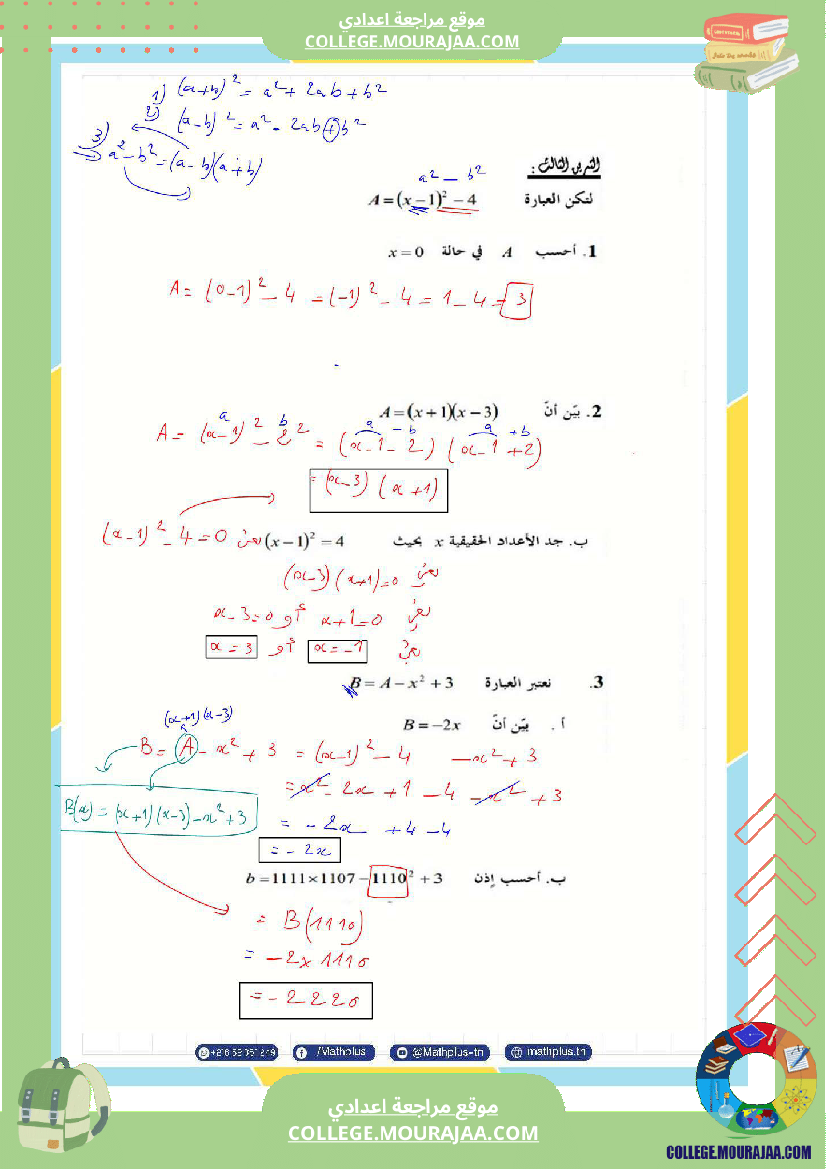 موقع مراجعة اعدادي
COLLEGE.MOURAJAA.COM
1) (a+b)² = a² + 2ab + b²
2) (a-b)² = a² - 2ab + b²
3) a² - b² = (a-b)(a+b)
التمرين الثالث :
a² - b²
لتكن العبارة A = (x-1)² - 4
1. أحسب A في حالة x = 0
A = (0-1)² - 4 = (-1)² - 4 = 1 - 4 = -3
2. بيّن أنّ A = (x+1)(x-3)
a b a - b a + b
A = (x-1)² - 2² = (x-1-2)(x-1+2)
= (x-3)(x+1)
ب. جد الأعداد الحقيقية x بحيث (x-1)² = 4
يعني (x-1)² - 4 = 0
يعني (x-3)(x+1) = 0
يعني x+1=0 أو x-3=0
يعني x = -1 أو x = 3
3. نعتبر العبارة B = A - x² + 3
أ. بيّن أنّ B = -2x
(x+1)(x-3)
B = A - x² + 3 = (x-1)² - 4 - x² + 3
= x² - 2x + 1 - 4 - x² + 3
B(x) = (x+1)(x-3) - x² + 3
= - 2x + 4 - 4
= - 2x
ب. أحسب إذن b = 1111×1107 - 1110² + 3
= B(1110)
= -2 x 1110
= - 2220
/Mathplus
@Mathplus-tn
mathplus.tn
موقع مراجعة اعدادي
COLLEGE.MOURAJAA.COM
COLLEGE.MOURAJAA.COM